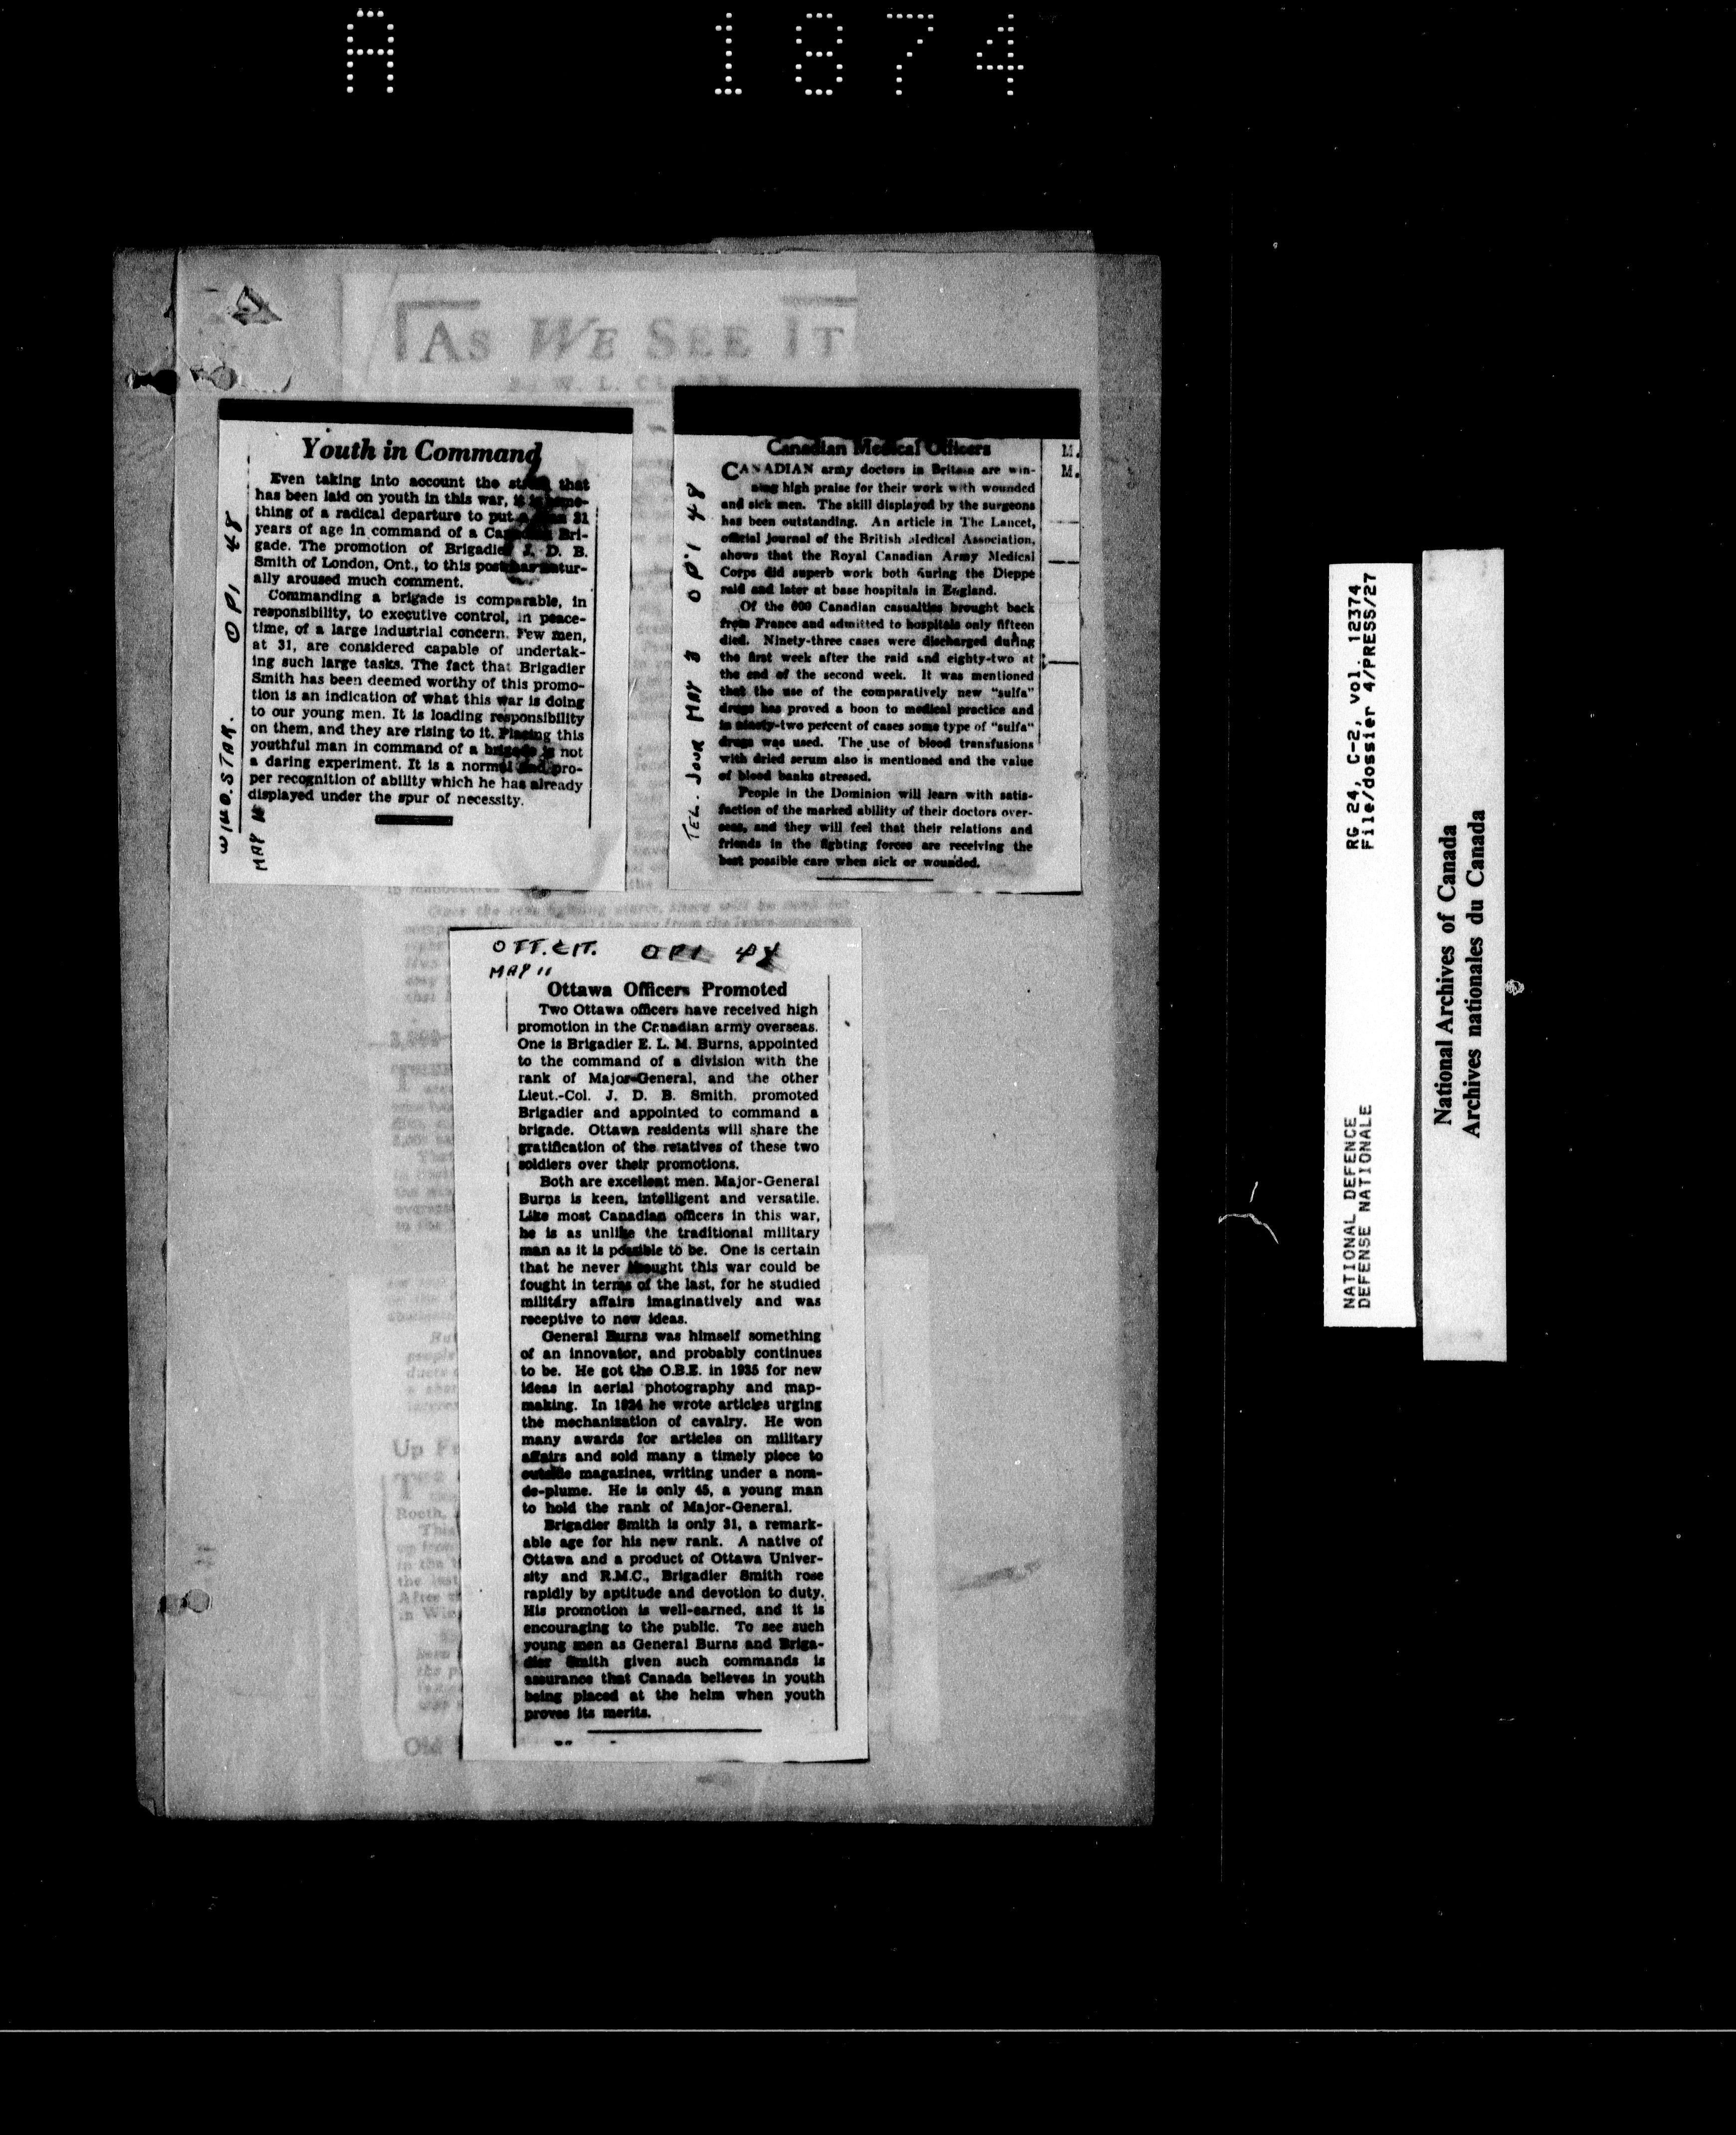 A 1874
AS WE SEE IT
W. L.
WIND. STAR. OPI 48
MAY
Youth in Command
Even taking into account the that
has been laid on youth in this war,
thing of a radical departure to put 31
years of age in command of a Bri-
gade. The promotion of Brigadier J. D. B.
Smith of London, Ont., to this post has natur-
ally aroused much comment.
Commanding a brigade is comparable, in
responsibility, to executive control, in peace-
time, of a large industrial concern. Few men,
at 31, are considered capable of undertak-
ing such large tasks. The fact that Brigadier
Smith has been deemed worthy of this promo-
tion is an indication of what this war is doing
to our young men. It is loading responsibility
on them, and they are rising to it. Placing this
youthful man in command of a brigade is not
a daring experiment. It is a normal and pro-
per recognition of ability which he has already
displayed under the spur of necessity.
TEL. JOUR MAY 8 OPI 48
Canadian Medical Officers
CANADIAN army doctors in Britain are win-
ning high praise for their work with wounded
and sick men. The skill displayed by the surgeons
has been outstanding. An article in The Lancet,
official journal of the British Medical Association,
shows that the Royal Canadian Army Medical
Corps did superb work both during the Dieppe
raid and later at base hospitals in England.
Of the 600 Canadian casualties brought back
from France and admitted to hospitals only fifteen
died. Ninety-three cases were discharged during
the first week after the raid and eighty-two at
the end of the second week. It was mentioned
that the use of the comparatively new "sulfa"
drugs has proved a boon to medical practice and
in ninety-two percent of cases some type of "sulfa"
drugs was used. The use of blood transfusions
with dried serum also is mentioned and the value
of blood banks stressed.
People in the Dominion will learn with satis-
faction of the marked ability of their doctors over-
seas, and they will feel that their relations and
friends in the fighting forces are receiving the
best possible care when sick or wounded.
M.
M.
OTT. CIT. OPI 48
MAY 11
Ottawa Officers Promoted
Two Ottawa officers have received high
promotion in the Canadian army overseas.
One is Brigadier E. L. M. Burns, appointed
to the command of a division with the
rank of Major-General, and the other
Lieut.-Col. J. D. B. Smith, promoted
Brigadier and appointed to command a
brigade. Ottawa residents will share the
gratification of the relatives of these two
soldiers over their promotions.
Both are excellent men. Major-General
Burns is keen, intelligent and versatile.
Like most Canadian officers in this war,
he is as unlike the traditional military
man as it is possible to be. One is certain
that he never thought this war could be
fought in terms of the last, for he studied
military affairs imaginatively and was
receptive to new ideas.
General Burns was himself something
of an innovator, and probably continues
to be. He got the O.B.E. in 1935 for new
ideas in aerial photography and map-
making. In 1924 he wrote articles urging
the mechanization of cavalry. He won
many awards for articles on military
affairs and sold many a timely piece to
outside magazines, writing under a nom-
de-plume. He is only 45, a young man
to hold the rank of Major-General.
Brigadier Smith is only 31, a remark-
able age for his new rank. A native of
Ottawa and a product of Ottawa Univer-
sity and R.M.C., Brigadier Smith rose
rapidly by aptitude and devotion to duty.
His promotion is well-earned, and it is
encouraging to the public. To see such
young men as General Burns and Briga-
dier Smith given such commands is
assurance that Canada believes in youth
being placed at the helm when youth
proves its merits.
NATIONAL DEFENCE RG 24, C-2, vol. 12374
DEFENSE NATIONALE File/dossier 4/PRESS/27
National Archives of Canada
Archives nationales du Canada